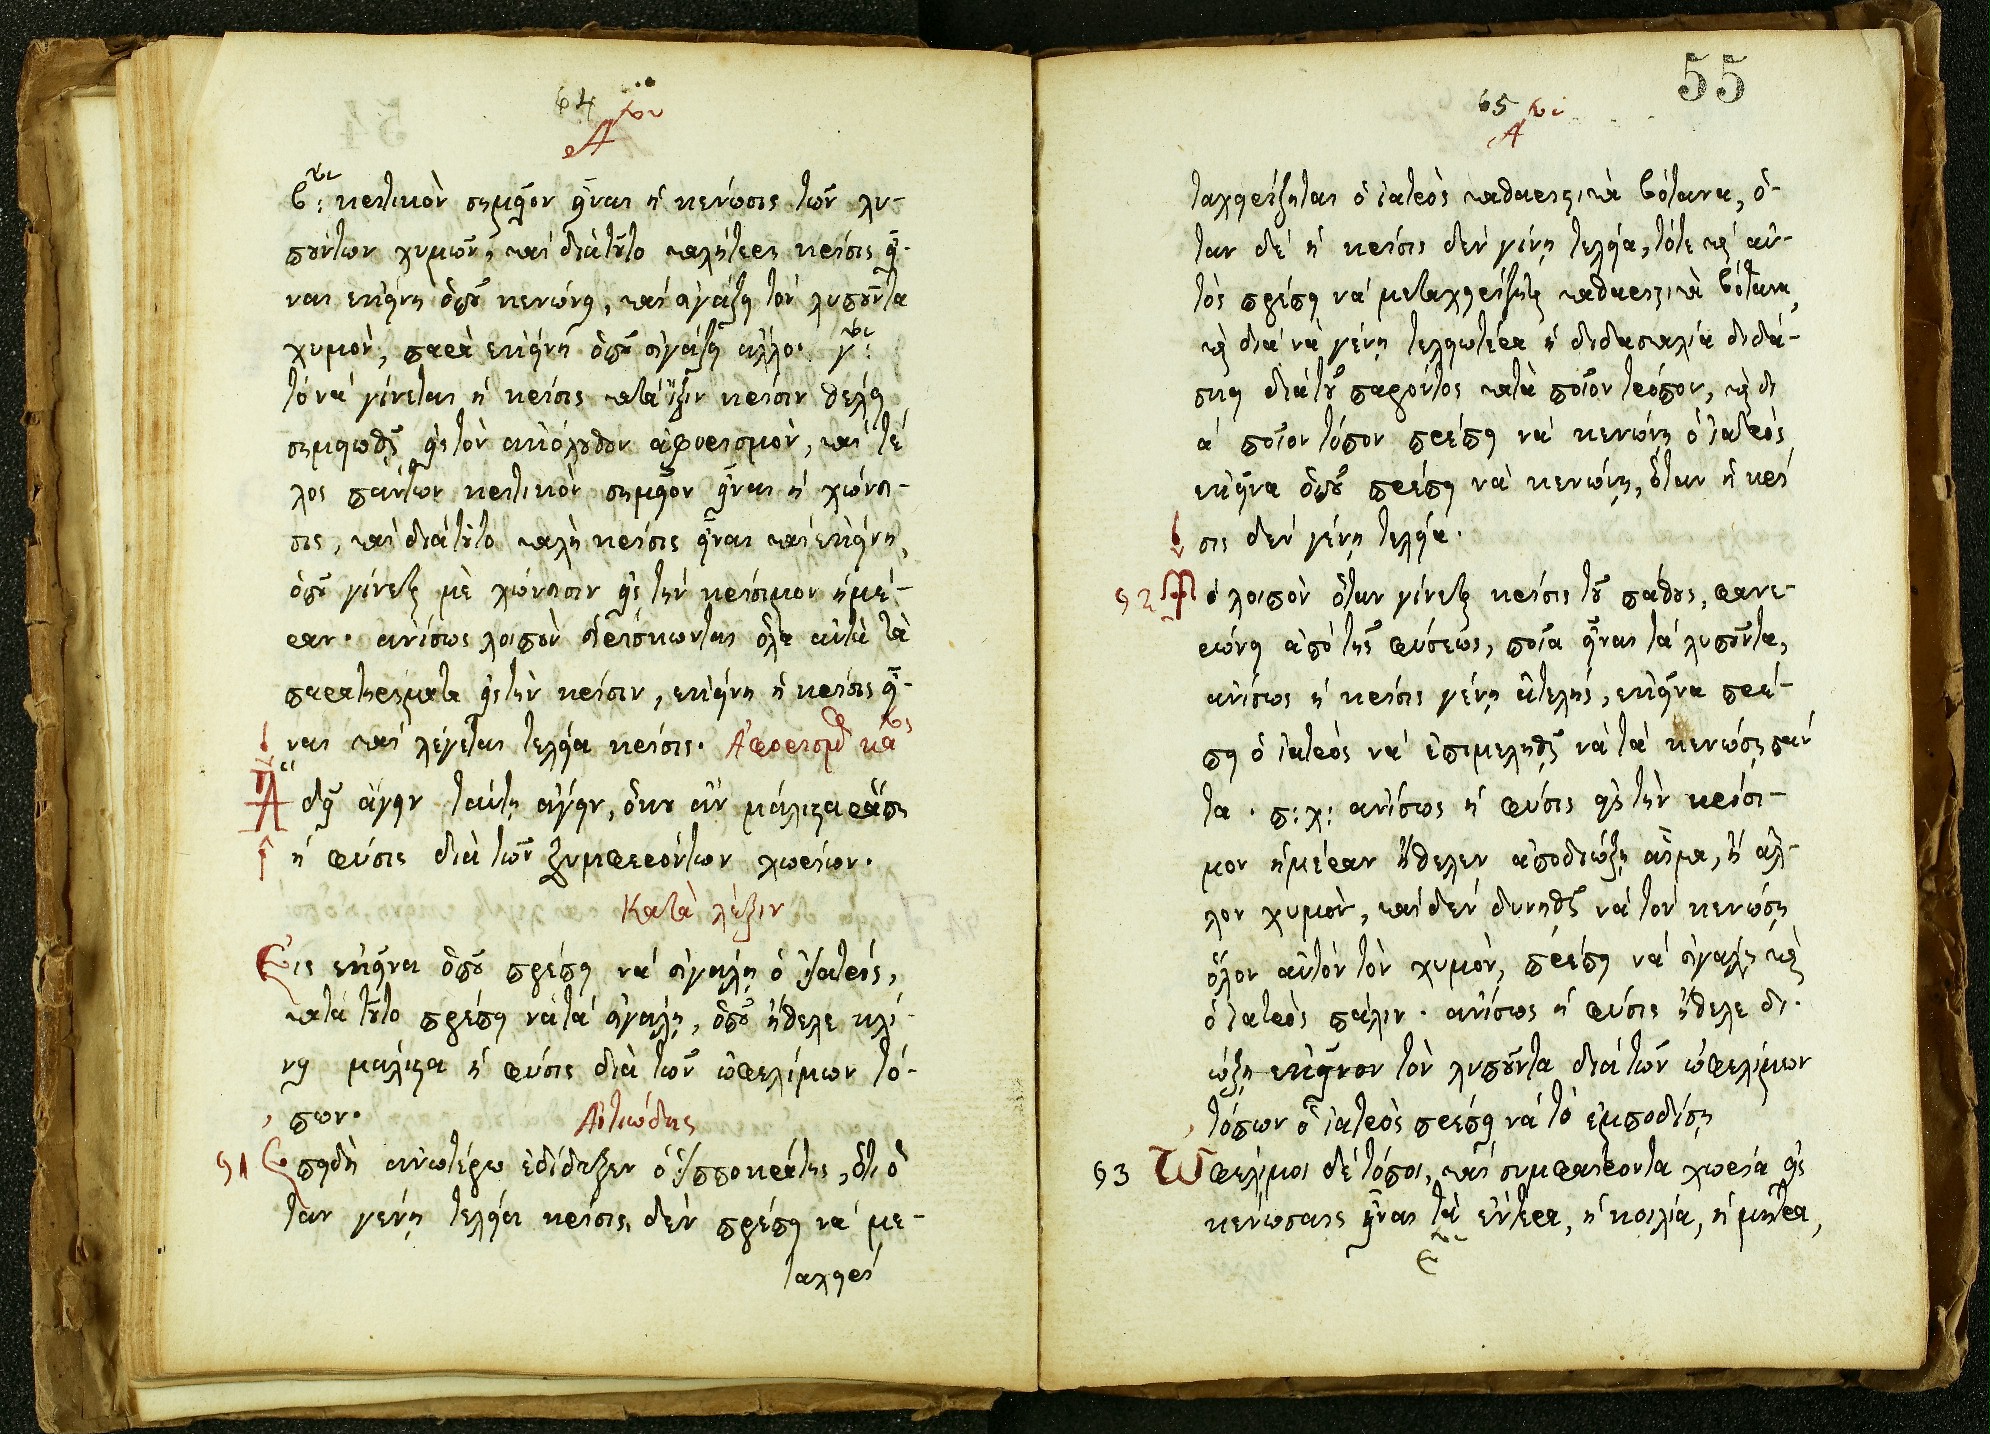 64
Α<sup>ον</sup>
β<sup>ον</sup>: κριτικὸν σημεῖον εἶναι ἡ κενώσις τῶν λυ-
πούντων χυμῶν, καὶ διὰ τοῦτο καλήτερη κρίσις εἶ-
ναι ἐκείνη ὁποῦ κενώνει, καὶ εὐγάζει τὸν λυποῦντα
χυμὸν, παρὰ ἐκείνη ὁποῦ εὐγάζει ἄλλο. γ<sup>ον</sup>:
τὸ νὰ γίνεται ἡ κρίσις κατὰ ἕξιν κρίσιν θέλει
σημειωθῆ εἰς τὸν ἀκόλουθον ἀφορισμὸν, καὶ τέ
λος πάντων κριτικὸν σημεῖον εἶναι ἡ χώνευ-
σις, καὶ διὰ τοῦτο καλὴ κρίσις εἶναι καὶ ἐκείνη,
ὁποῦ γίνεται μὲ χώνευσιν εἰς τὴν κρίσιμον ἡμέ-
ραν. ἀνίσως λοιπὸν εὑρίσκωνται ὅλα αὐτὰ τὰ
παρατηρήματα εἰς τὴν κρίσιν, ἐκείνη ἡ κρίσις εἶ-
ναι καὶ λέγεται τελεία κρίσις. Ἀφορισμὸς κα<sup>ος</sup>
Ἃ δεῖ ἄγειν ταύτῃ ἄγειν, ὅκου ἂν μάλιστα ῥέπῃ
ἡ φύσις διὰ τῶν ξυμφερόντων χωρίων.
Κατὰ λέξιν
Εἰς ἐκεῖνα ὁποῦ πρέπει νὰ εὐγάλῃ ὁ ἰατρός,
κατὰ τοῦτο πρέπει νὰ τὰ εὐγάλῃ, ὁποῦ ἤθελε κλί-
νῃ μάλιστα ἡ φύσις διὰ τῶν ὠφελίμων τό-
πων. Αἰτιώδης
91 Ἐπειδὴ ἀνωτέρω ἐδίδαξεν ὁ Ἱπποκράτης, ὅτι ὅ
ταν γένῃ τελεία κρίσις δὲν πρέπει νὰ με-
ταχρεί
55
65
Α<sup>ον</sup>
ταχρείζηται ὁ ἰατρὸς καθαρτικὰ βότανα, ὅ-
ταν δὲ ἡ κρίσις δὲν γένῃ τελεία, τότε καὶ αὐ-
τὸς πρέπει νὰ μεταχρείζηται καθαρτικὰ βότανα,
καὶ διὰ νὰ γένῃ τελειωτέρα ἡ διδασκαλία διδά-
σκει διὰ τοῦ παρόντος κατὰ ποῖον τρόπον, καὶ δι
ὰ ποῖον τόπον πρέπει νὰ κενώνῃ ὁ ἰατρὸς
ἐκεῖνα ὁποῦ πρέπει νὰ κενώνῃ, ὅταν ἡ κρί
σις δὲν γένῃ τελεία.
92 Τὸ λοιπὸν ὅταν γίνεται κρίσις τοῦ πάθους, φανε-
ρώνει ἀπὸ τῆς φύσεως, ποῖα εἶναι τὰ λυποῦντα,
ἀνίσως ἡ κρίσις γένῃ ἀτελής, ἐκεῖνα πρέ-
πει ὁ ἰατρὸς νὰ ἐπιμεληθῆ νὰ τὰ κενώσῃ πάν
τα. π:χ: ἀνίσως ἡ φύσις εἰς τὴν κρίσι-
μον ἡμέραν ἤθελεν ἀποδιώξῃ αἷμα, ἢ ἄλ-
λον χυμὸν, καὶ δὲν δυνηθῆ νὰ τὸν κενώσῃ
ὅλον αὐτὸν τὸν χυμὸν, πρέπει νὰ εὐγάλῃ καὶ
ὁ ἰατρὸς πάλιν. ἀνίσως ἡ φύσις ἤθελε δι-
ώξῃ ἐκεῖνον τὸν λυποῦντα διὰ τῶν ὠφελίμων
τόπων ὁ ἰατρὸς πρέπει νὰ τὸ ἐμποδίσῃ
93 Ὠφέλιμοι δὲ τόποι, καὶ συμφέροντα χωρία εἰς
κένωσαις εἶναι τὰ ἔντερα, ἡ κοιλία, ἡ μήτρα,